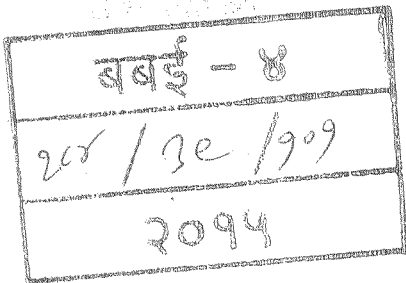 बबई - ४
१८४ / ३८ / १०१
२०१५